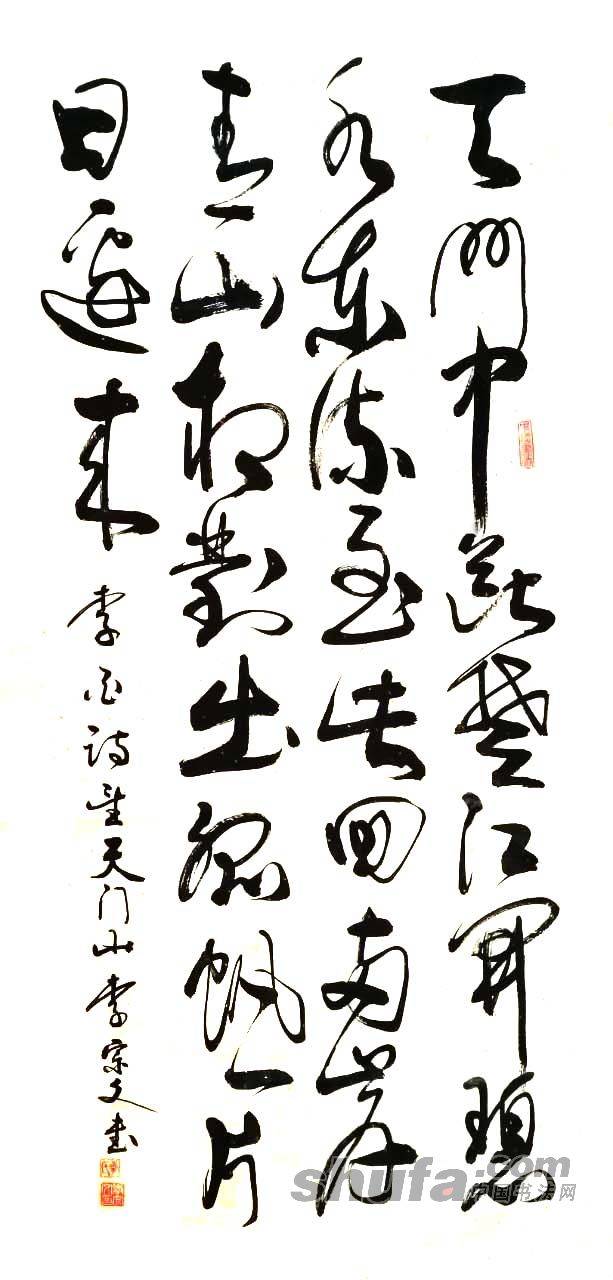 天門中斷楚江開碧
水東流至此回兩岸
青山相對出孤帆一片
日邊來
李白詩望天门山李宗文書
shufa.com
中国书法网